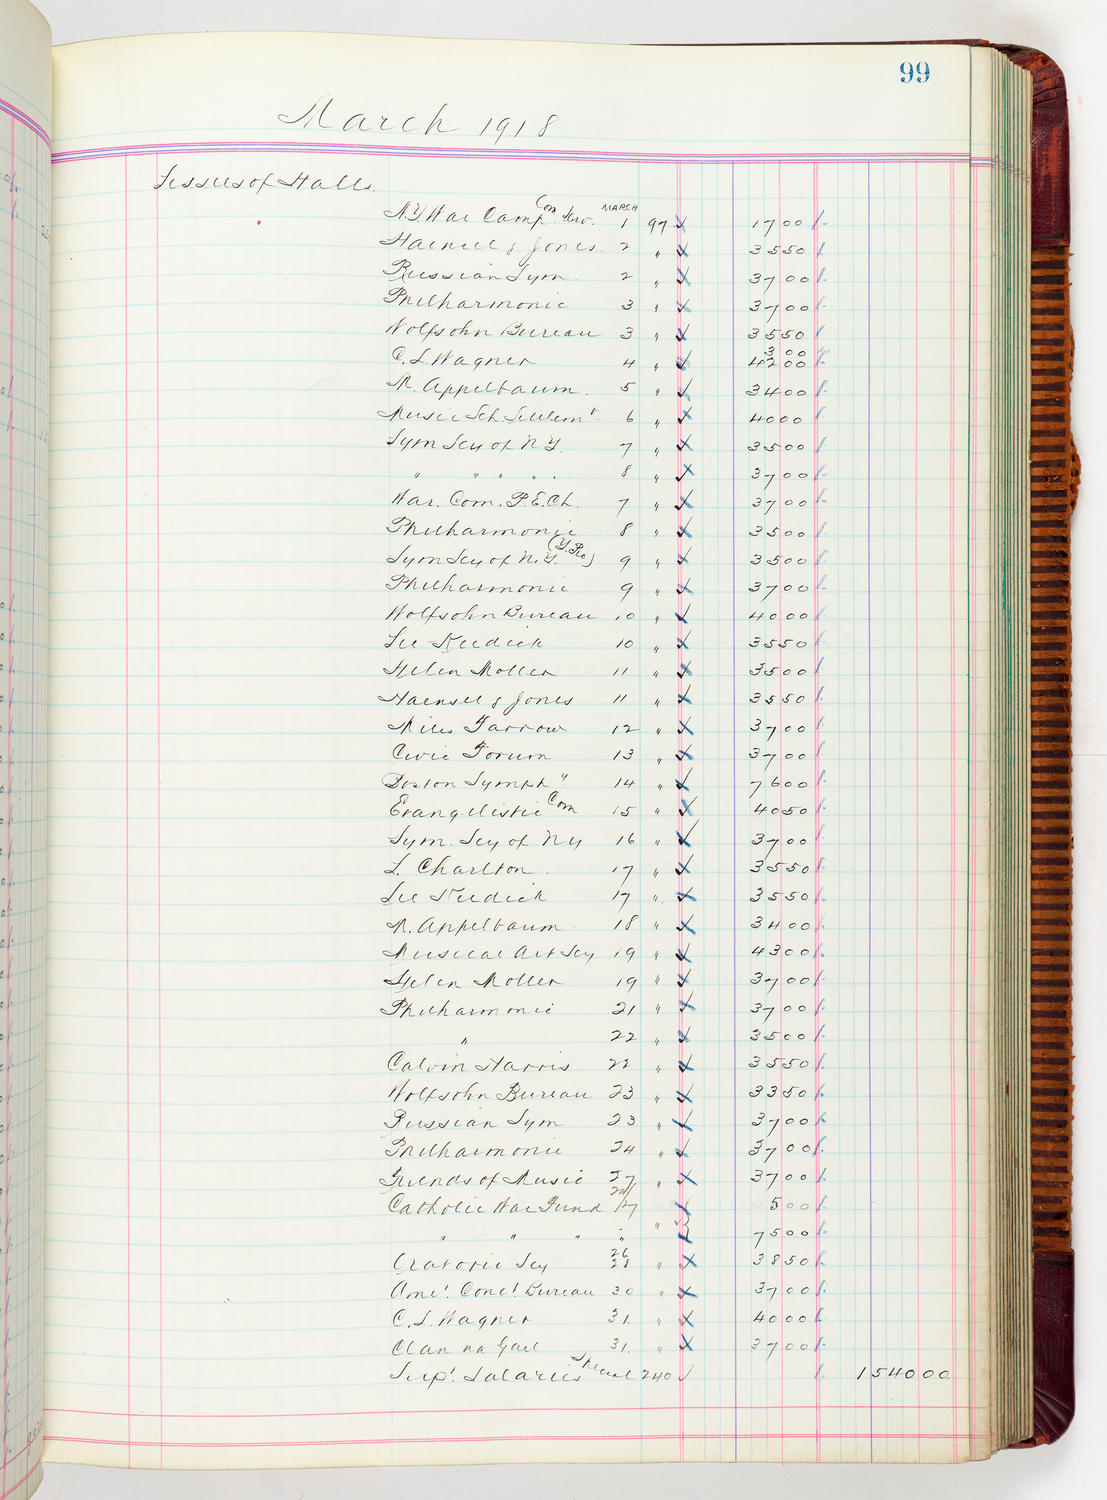 99
March 1918
Lessees of Halls
N.Y. War Camp Com. Serv. MARCH 1 97 1700
Haensel & Jones 2 " 3550
Russian Sym 2 " 3700
Philharmonic 3 " 3700
Wolfsohn Bureau 3 " 3550
C. L. Wagner 4 " 300 4200
M. Appelbaum 5 " 3400
Music Sch. Settlemt 6 " 4000
Sym Scy of N.Y. 7 " 3500
" " " " . 8 " 3700
War. Com. P.E.Ch. 7 " 3700
Philharmonic 8 " 3500
Sym Scy of N.Y. (Y.Peo) 9 " 3500
Philharmonic 9 " 3700
Wolfsohn Bureau 10 " 4000
Lee Keedick 10 " 3550
Helen Moller 11 " 3500
Haensel & Jones 11 " 3550
Miles Farrow 12 " 3700
Civic Forum 13 " 3700
Boston Symph " 14 " 7600
Evangelistic Com 15 " 4050
Sym. Scy of NY 16 " 3700
L. Charlton 17 " 3550
Lee Keedick 17 " 3550
M. Appelbaum 18 " 3400
Musical Art Scy 19 " 4300
Helen Moller 19 " 3700
Philharmonic 21 " 3700
" 22 " 3500
Calvin Harris 22 " 3550
Wolfsohn Bureau 23 " 3350
Russian Sym 23 " 3700
Philharmonic 24 " 3700
Friends of Music 27 " 3700
Catholic War Fund 17 500
" " " " " 7500
Oratorio Scy 26 28 " 3850
Amer. Conct. Bureau 30 " 3700
C. L. Wagner 31. " 4000
Clan na Gael 31. " 3700
Supt. Salaries Special 240 154000